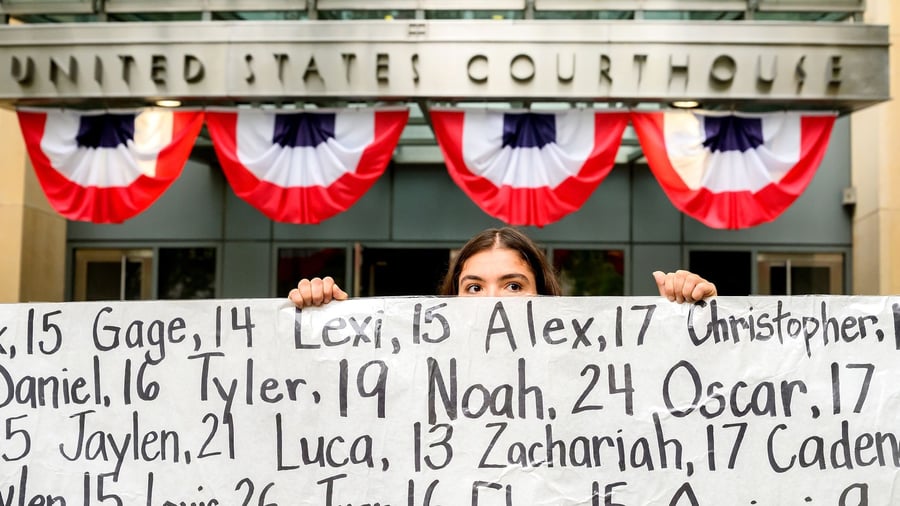 UNITED STATES COURTHOUSE
,15 Gage,14 Lexi,15 Alex,17 Christopher,
Daniel,16 Tyler,19 Noah,24 Oscar,17
5 Jaylen,21 Luca,13 Zachariah,17 Caden
15 Louis 26 16 15